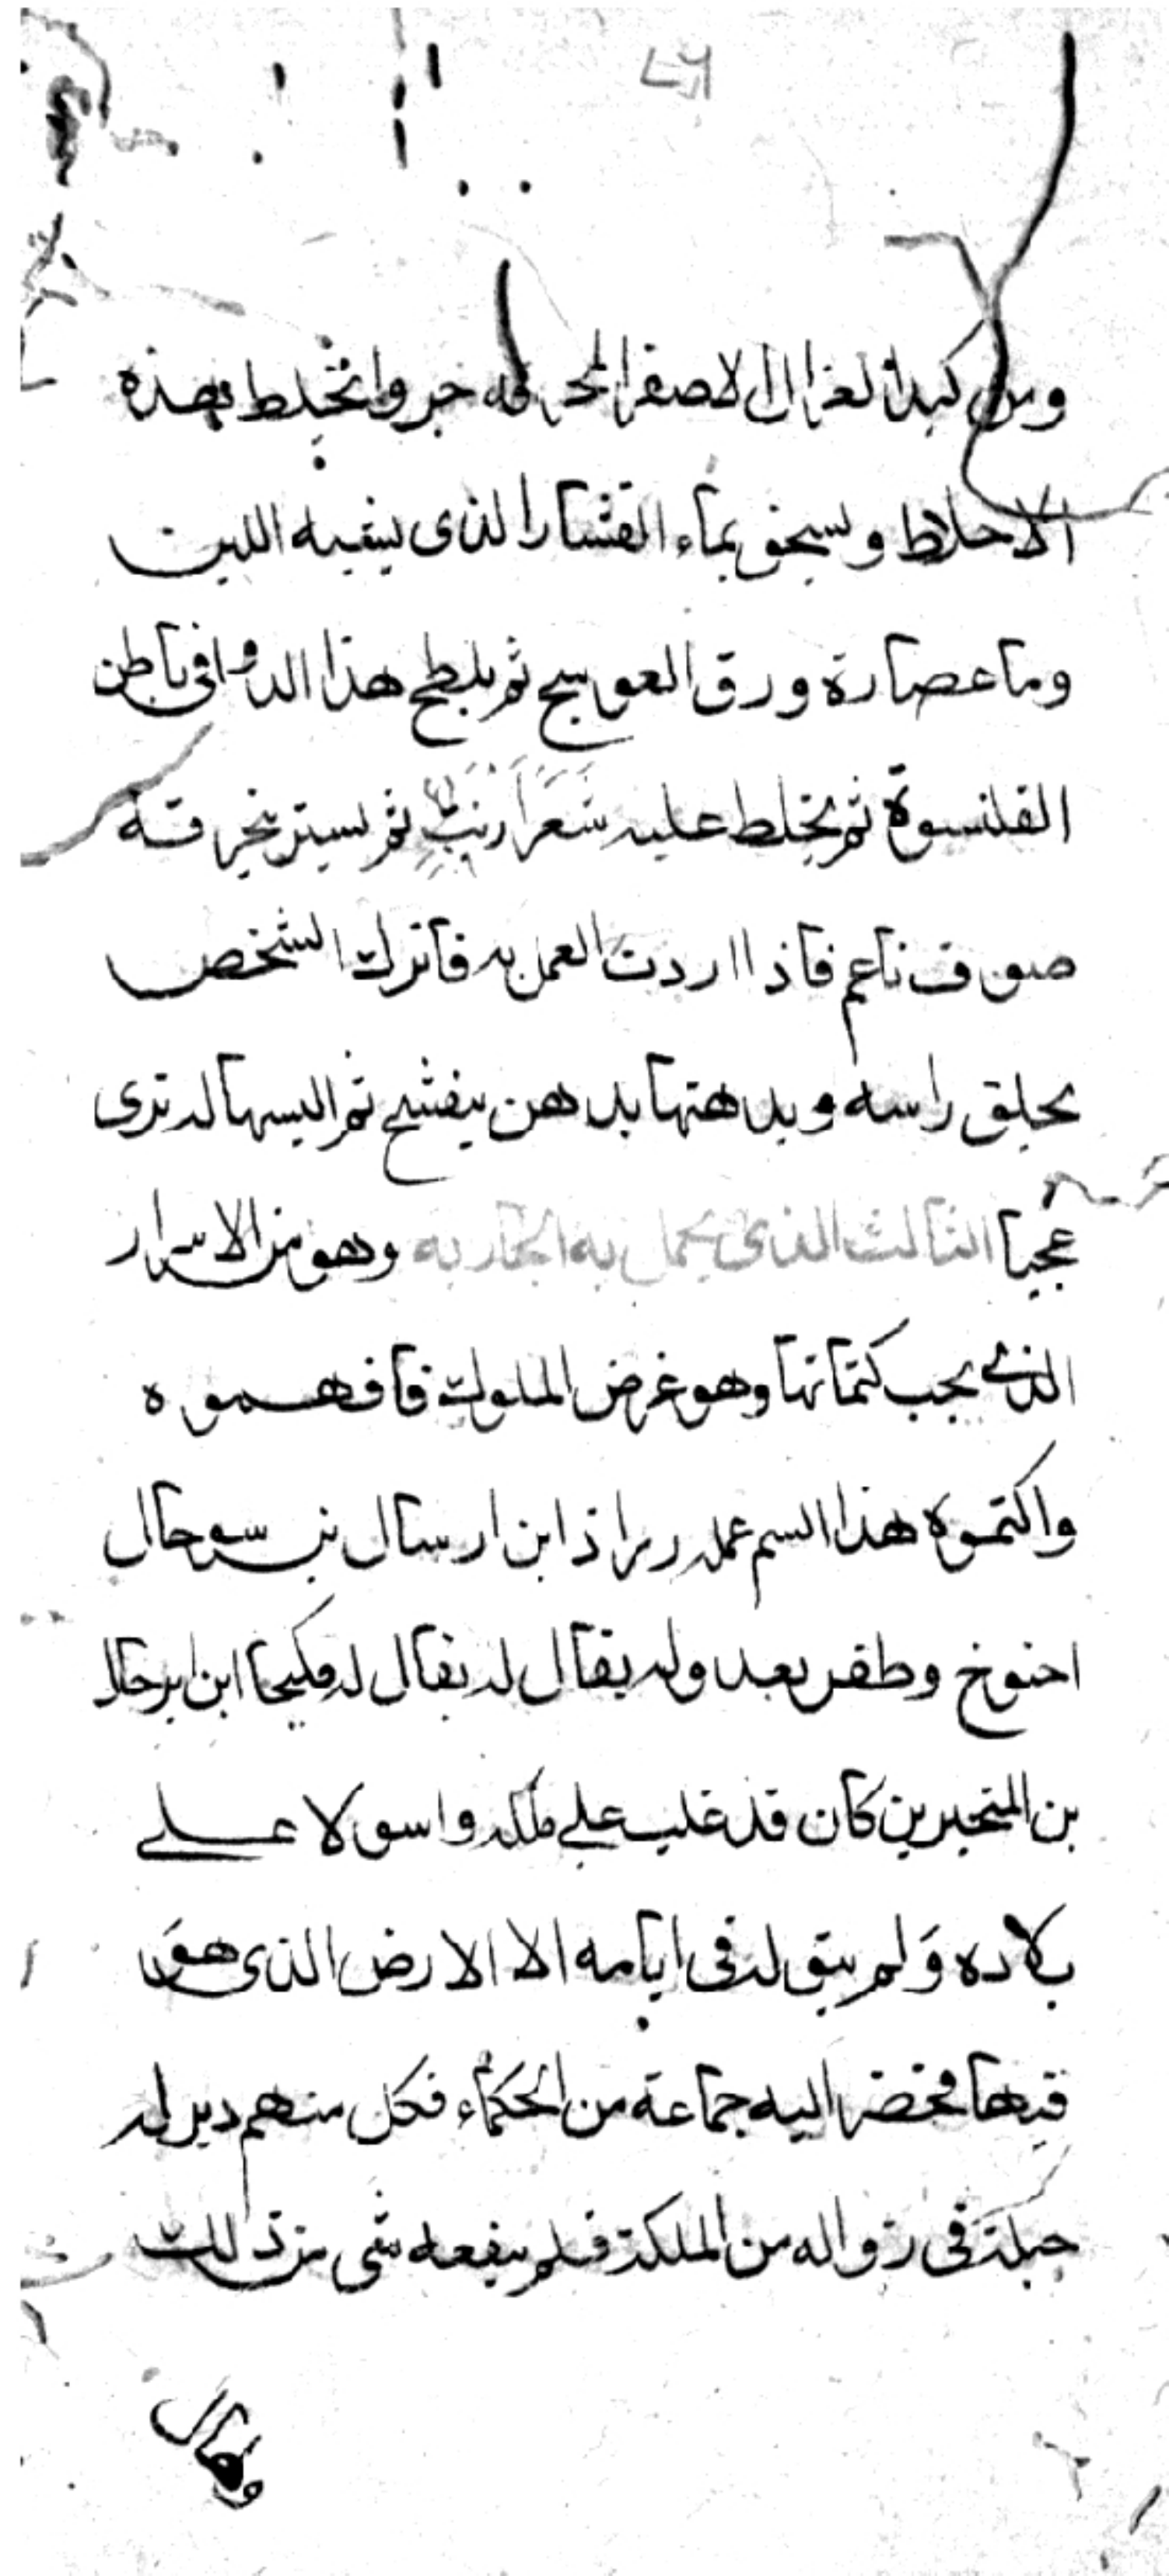 ومن كبد الغزال الاصفر المحرقه جزوا تخلط بهذه
الاخلاط ويسحق بماء القشار الذى يشبه اللبن
وما عصارة ورق العوسج ثم يلطخ هذا الدوا فى باطن
القلنسوة ثم يخلط عليه شعر ارنب ثم يستر بخرقة
صوف ناعم فاذا اردت العمل به فاترك الشخص
يحلق راسه ويدهنها بدهن بنفسج ثم البسها له ترى
عجبا الثالث الذى يعمل به الجاربه وهو من الاسرار
الذى يجب كتمانها وهو غرض الملوك فافهموه
واكتموه هذا السم عمله ابن ارسال بن سوحال
احنوخ وظفر بعدوله يقال له يقال له ابن
بن المتجبرين كان قد غلب على ملكه واسولا على
بلاده ولم يبق له فى ايامه الا الارض الذى هو
فيها فحضر اليه جماعة من الحكماء فكل منهم دبر له
حيلة فى زواله من المملكة فلم ينفعه شى من ذلك
وقال